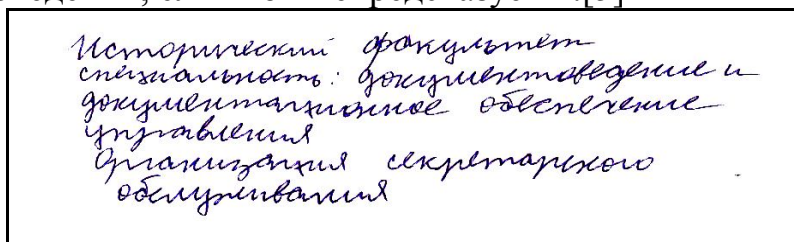 Исторический факультет
специальность: документоведение и
документационное обеспечение
управления
Организация секретарского
обслуживания